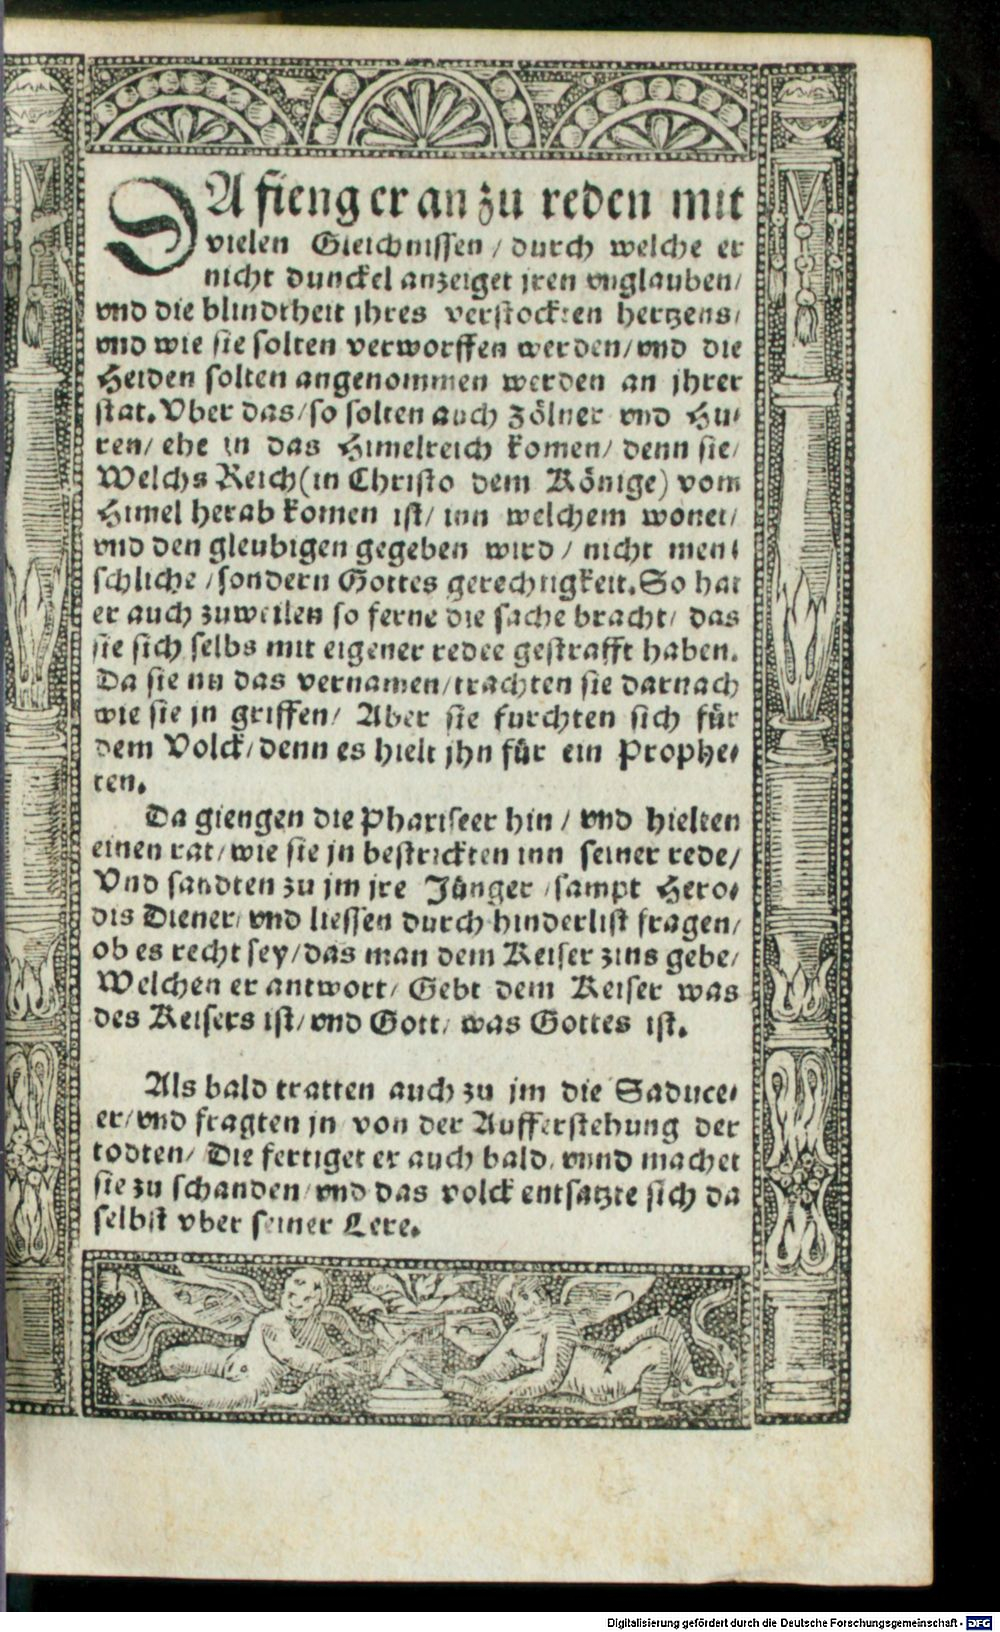 DA fieng er an zu reden mit
vielen Gleichnissen / durch welche er
nicht dunckel anzeiget jren vnglauben /
vnd die blindtheit jhres verstockten hertzens /
vnd wie sie solten verworffen werden / vnd die
Heiden solten angenommen werden an jhrer
stat. Vber das / so solten auch Zölner vnd Hu-
ren / ehe in das Himelreich komen / denn sie /
Welchs Reich (in Christo dem Könige) vom
Himel herab komen ist / inn welchem wonet /
vnd den gleubigen gegeben wird / nicht men-
schliche / sondern Gottes gerechtigkeit. So hat
er auch zuweilen so ferne die sache bracht / das
sie sich selbs mit eigener redee gestrafft haben.
Da sie nu das vernamen / trachten sie darnach
wie sie jn griffen / Aber sie furchten sich für
dem Volck / denn es hielt jhn für ein Prophe-
ten.
Da giengen die Phariseer hin / vnd hielten
einen rat / wie sie jn bestrickten inn seiner rede /
Vnd sandten zu jm jre Jünger / sampt Hero-
dis Diener / vnd liessen durch hinderlist fragen /
ob es recht sey / das man dem Keiser zins gebe /
Welchen er antwort / Gebt dem Keiser was
des Keisers ist / vnd Gott / was Gottes ist.
Als bald tratten auch zu jm die Saduce-
er / vnd fragten jn von der Aufferstehung der
todten / Die fertiget er auch bald / vnnd machet
sie zu schanden / vnd das volck entsatzte sich da
selbst vber seiner Lere.
Digitalisierung gefördert durch die Deutsche Forschungsgemeinschaft - DFG